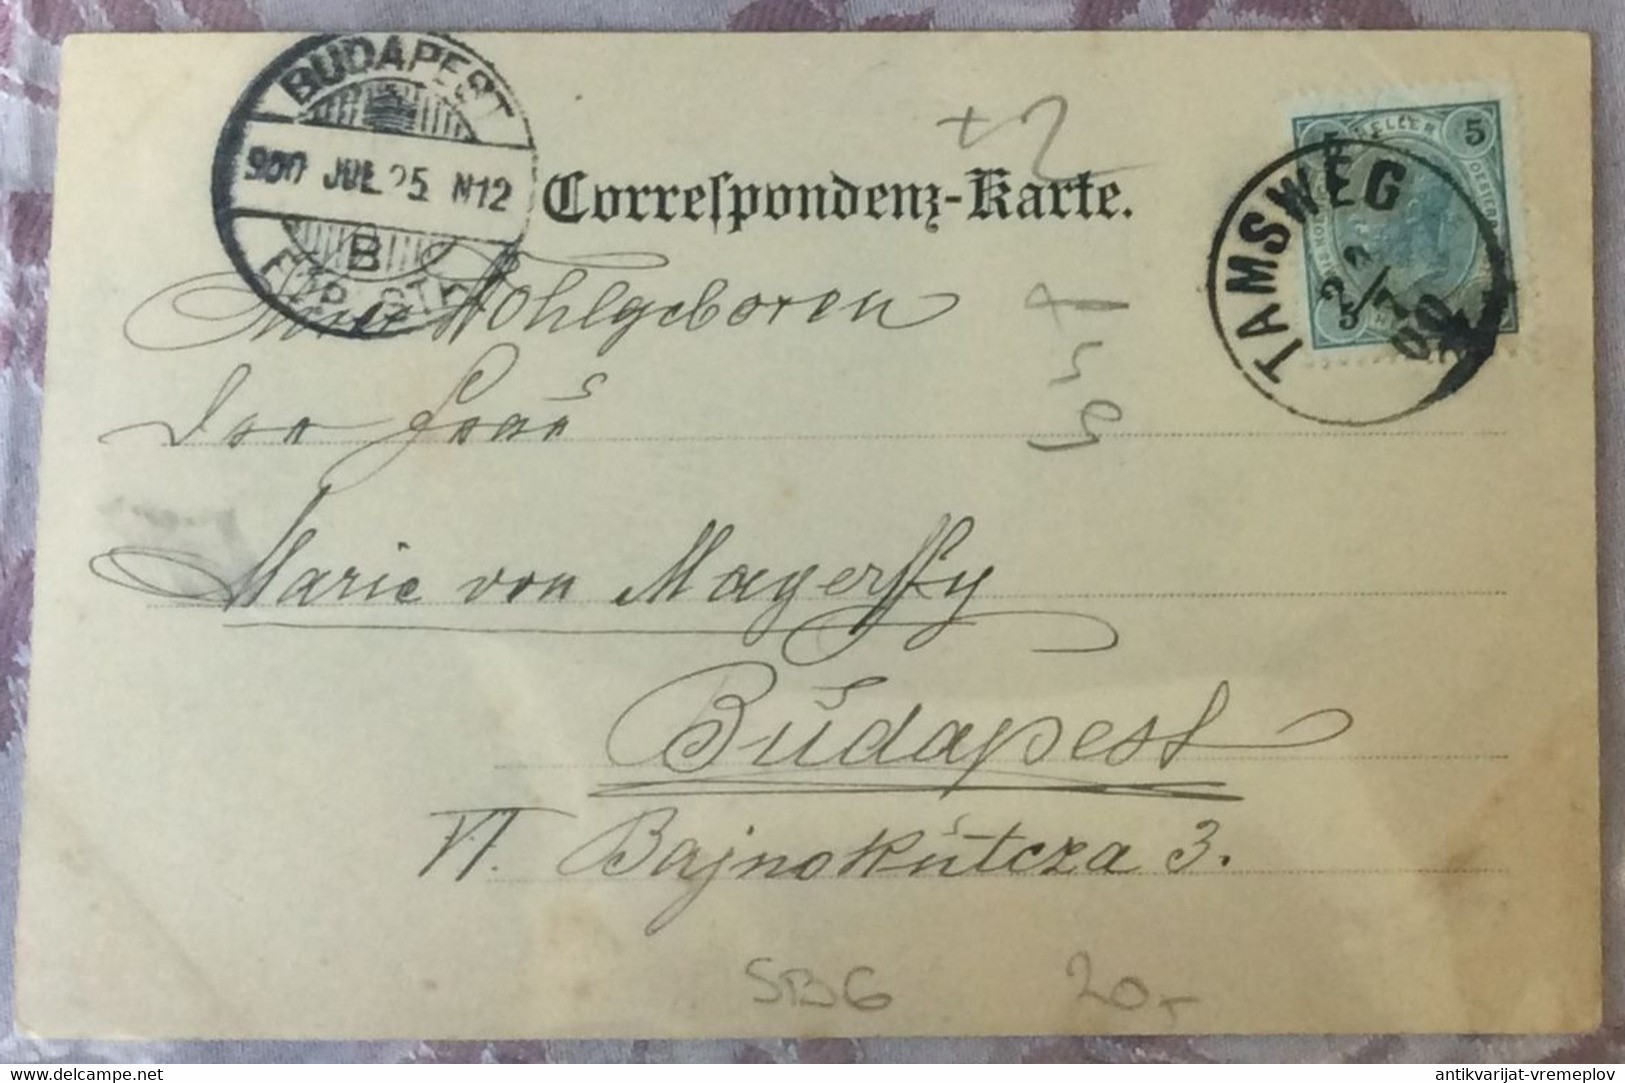 BUDAPEST
900 JUL 25 N12
B
Correspondenz-Karte.
+2
TAMSWEG
22/7 00
HELLER
5
5
Wohlgeboren
Frau
Marie von Magerssky
Budapest
VI. Bajnokútcza 3.
SBG 20,-
delcampe.net
antikvarijat-vremeplov